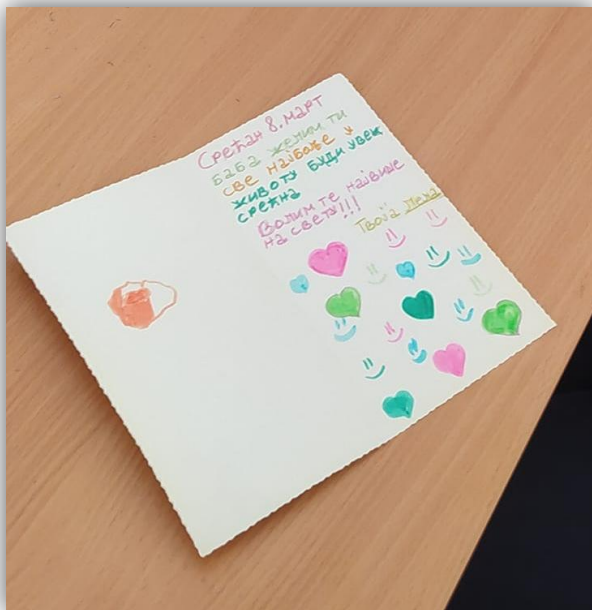 Срећан 8. март
баба желим ти
све најбоље у
животу буди увек
срећна
Волим те највише
на свету!!!
Твоја